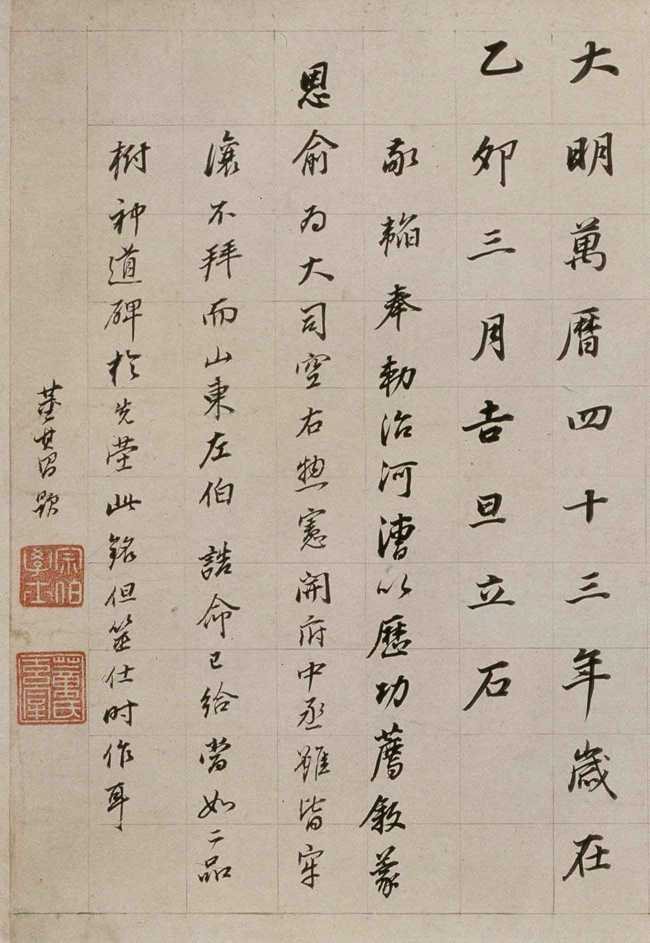 大明萬曆四十三年歲在
乙卯三月吉旦立石
敬韜奉勅治河漕以歷功薦敘蒙
恩俞為大司空右憲開府中丞雖皆牢
讓不拜而山東左伯誥命已給當如二品
樹神道碑於先塋此銘但筮仕時作耳
董其昌題
宗伯學士
董氏玄宰